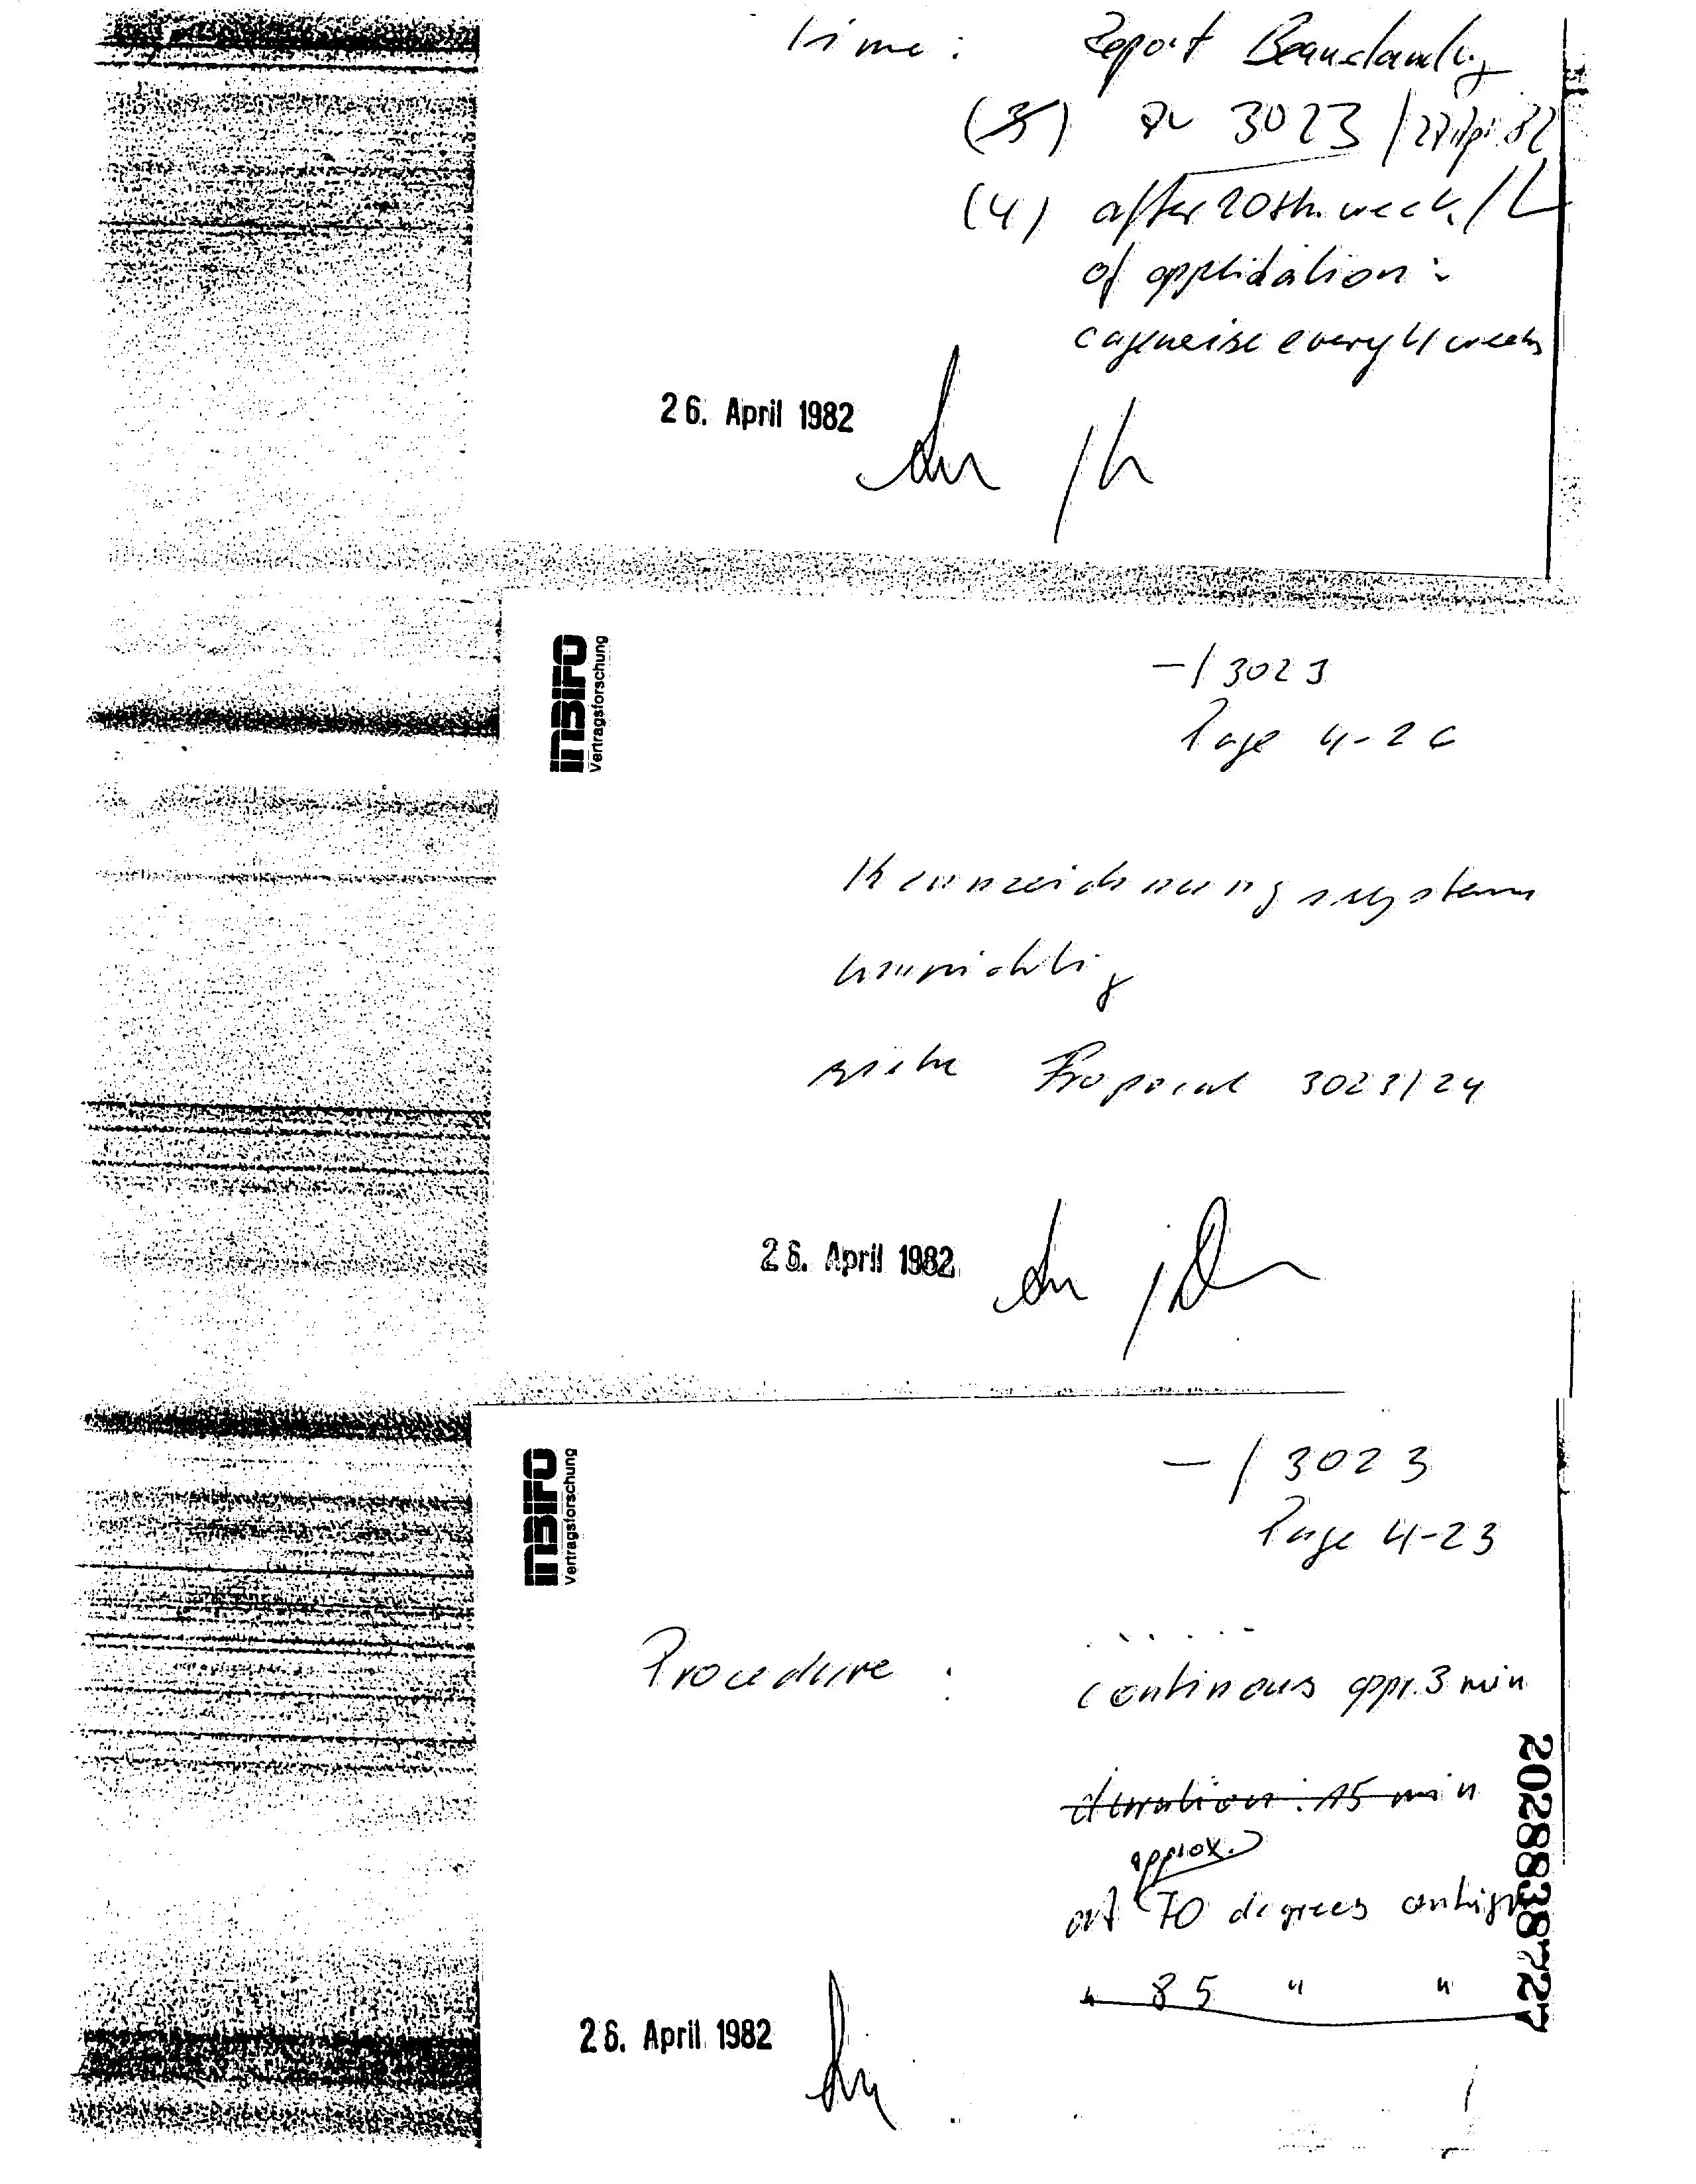 time : Report
(3) 3023 / 27. Apr. 82
(4) after 20th. week /
of application :
cagewise every 4 weeks
26. April 1982
INBIFO
Vertragsforschung
-/ 3023
Page 4-26
Kennzeichnungssystem
unwichtig
siehe Proposal 3023/24
26. April 1982
INBIFO
Vertragsforschung
- / 3023
Page 4-23
. . . . .
Procedure : continous appr. 3 min
duration : 15 min
approx.
at 70 degrees
" 85 " "
26. April 1982
2028838727